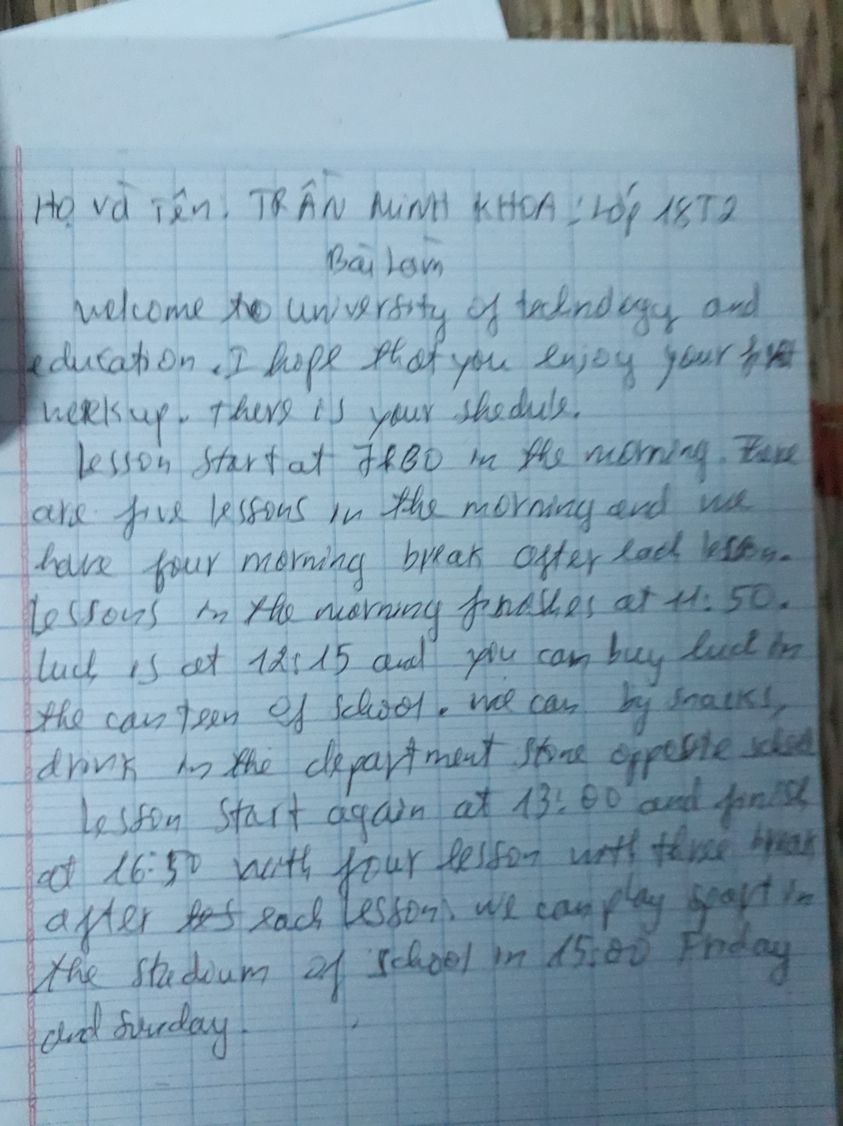 Họ và Tên: TRẦN MINH KHOA : Lớp 18T2
Bài Làm
Welcome to university of and
education. I hope that you enjoy your
up. there is your shedule.
Lesson start at in the morning. There
are five lessons in the morning and we
have four morning break after each lesson.
Lessons in the morning finishes at 11:50.
luch is at 12:15 and you can buy luch in
the canteen of school. We can by snacks,
drink in the department store opposite school
Lesson start again at 13:00 and finish
at 16:50 with four lesson with three break
after each lesson. We can play sport in
the stadium of school in 15:00 Friday
and Sunday.